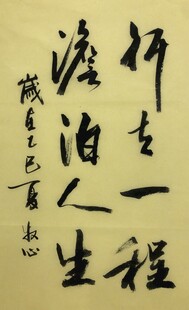 行立一程
澹泊人生
歲在乙巳夏